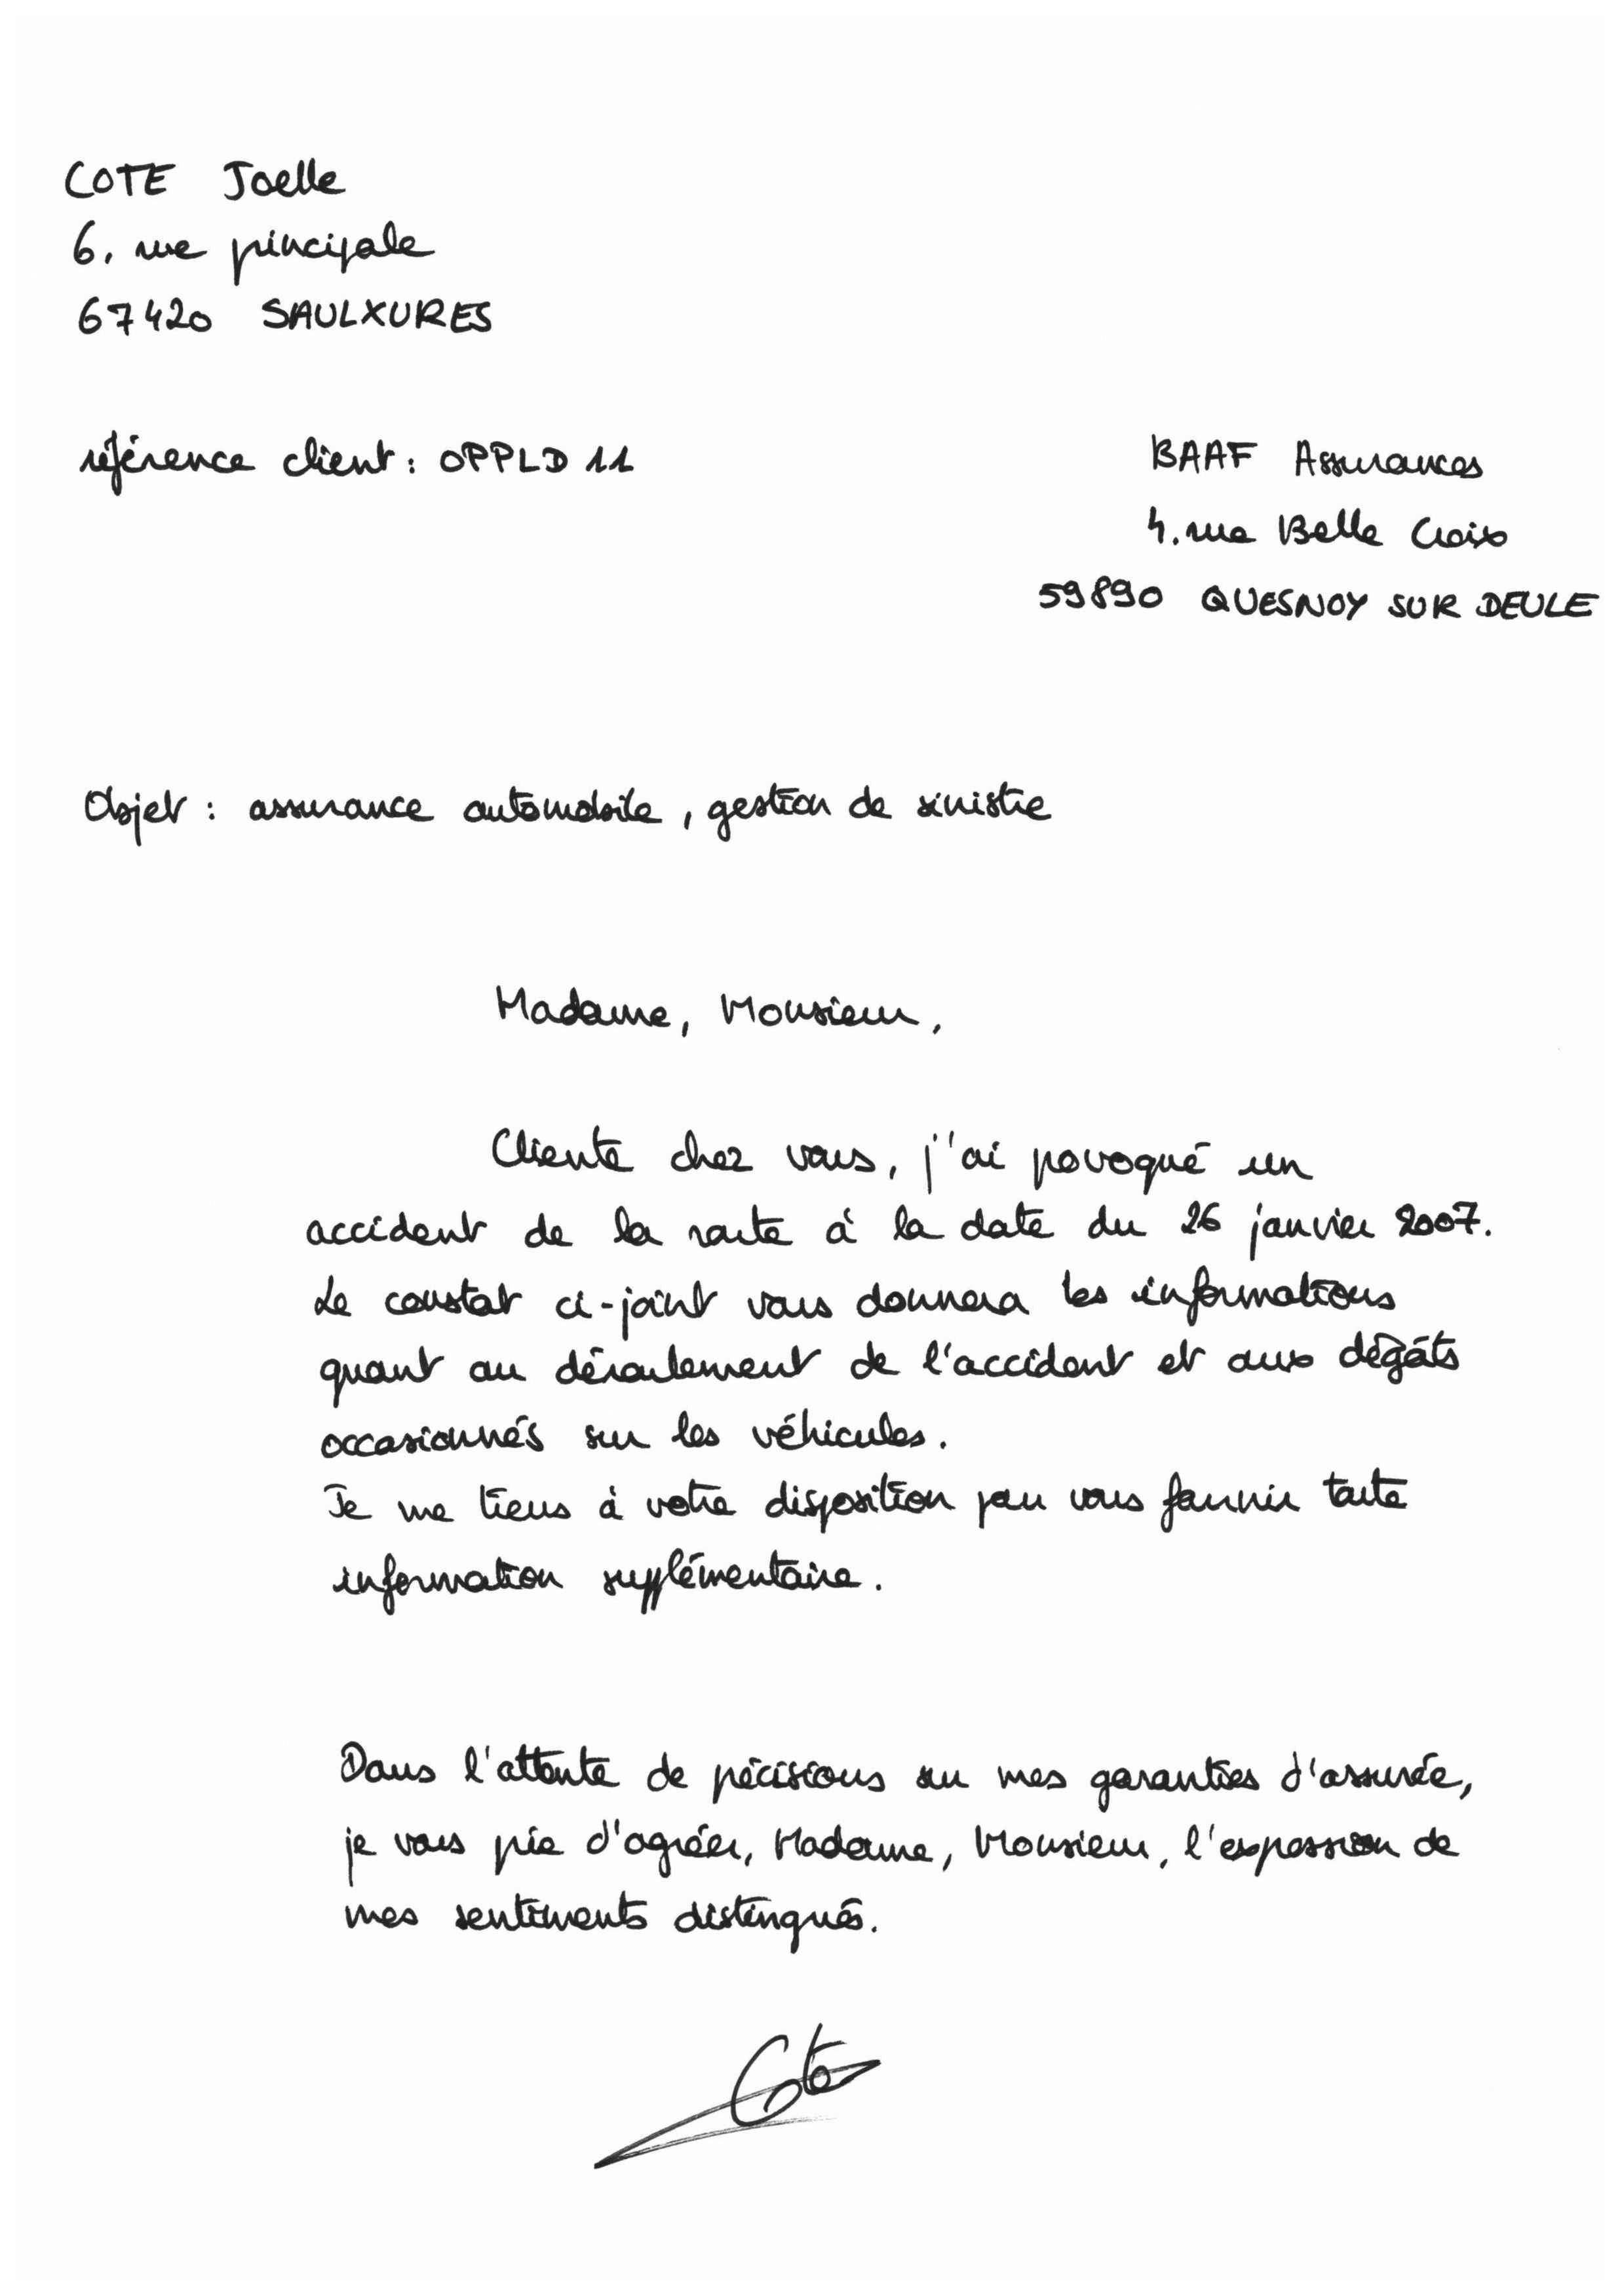 COTE Joelle
6, rue principale
67420 SAULXURES
référence client : OPPLD 11
BAAF Assurances
4. rue Belle Croix
59890 QUESNOY SUR DEULE
Objet : assurance automobile, gestion de sinistre
Madame, Monsieur,
Cliente chez vous, j'ai provoqué un
accident de la route à la date du 26 janvier 2007.
Le constat ci-joint vous donnera les informations
quant au déroulement de l'accident et aux dégâts
occasionnés sur les véhicules.
Je me tiens à votre disposition pour vous fournir toute
information supplémentaire.
Dans l'attente de précisions sur mes garanties d'assurée,
je vous prie d'agréer, Madame, Monsieur, l'expression de
mes sentiments distingués.
Cote